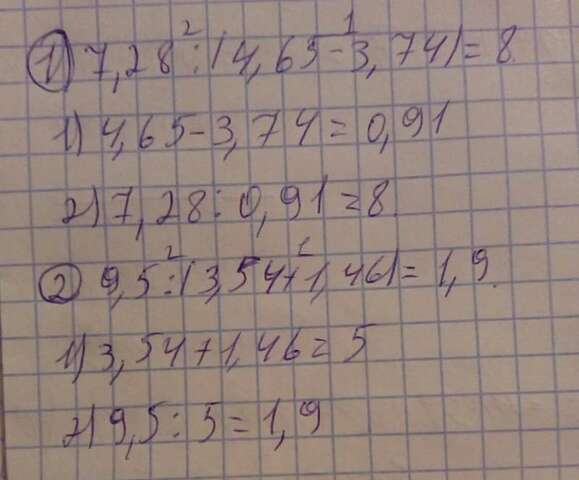 1) 7,28 : (4,65 - 3,74) = 8
1) 4,65 - 3,74 = 0,91
2) 7,28 : 0,91 = 8
2 9,5 : (3,54 + 1,46) = 1,9
1) 3,54 + 1,46 = 5
2) 9,5 : 5 = 1,9